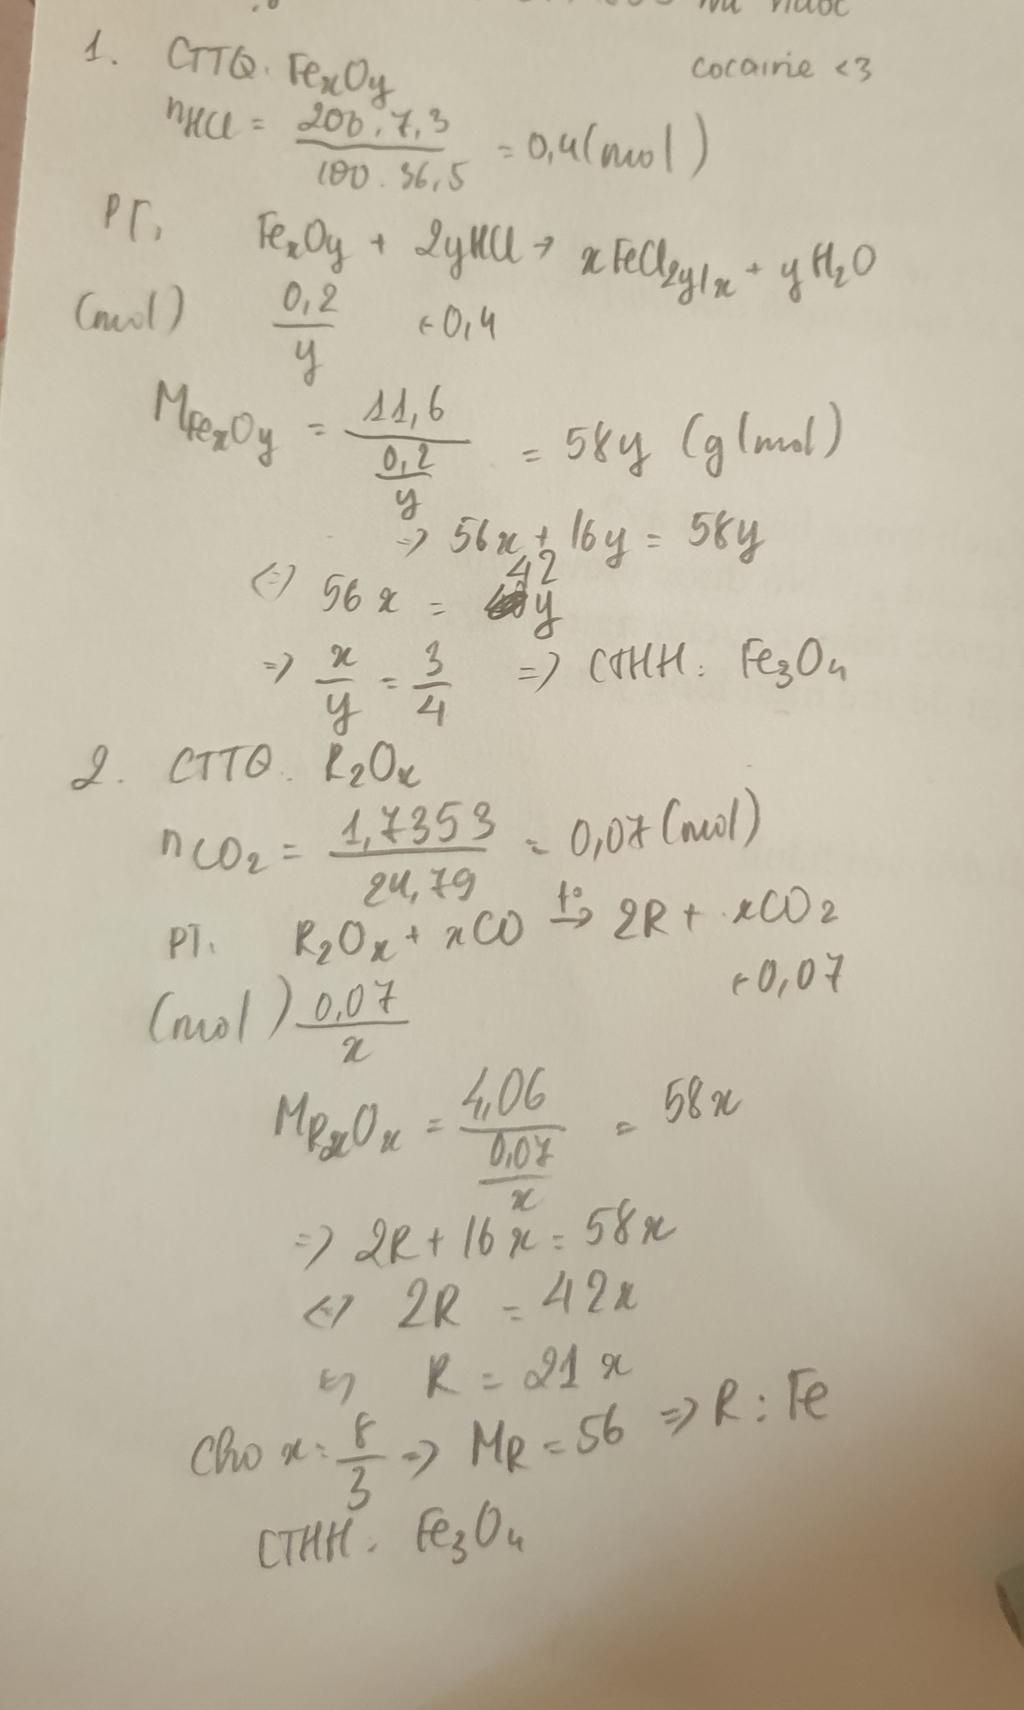 nước
cocaine <3
1. CTTQ: FexOy
nHCl = 200.7,3 / 100.36,5 = 0,4 (mol)
PT: FexOy + 2yHCl → xFeCl2y/x + yH2O
(mol) 0,2/y ←0,4
MFexOy = 11,6 / (0,2/y) = 58y (g/mol)
=> 56x + 16y = 58y
<=> 56x = 42y
=> x/y = 3/4 => CTHH: Fe3O4
2. CTTQ: R2Ox
nCO2 = 1,7353 / 24,79 = 0,07 (mol)
PT: R2Ox + xCO t°→ 2R + xCO2
(mol) 0,07/x ←0,07
MR2Ox = 4,06 / (0,07/x) = 58x
=> 2R + 16x = 58x
<=> 2R = 42x
<=> R = 21x
Cho x = 8/3 => MR = 56 => R: Fe
CTHH: Fe3O4